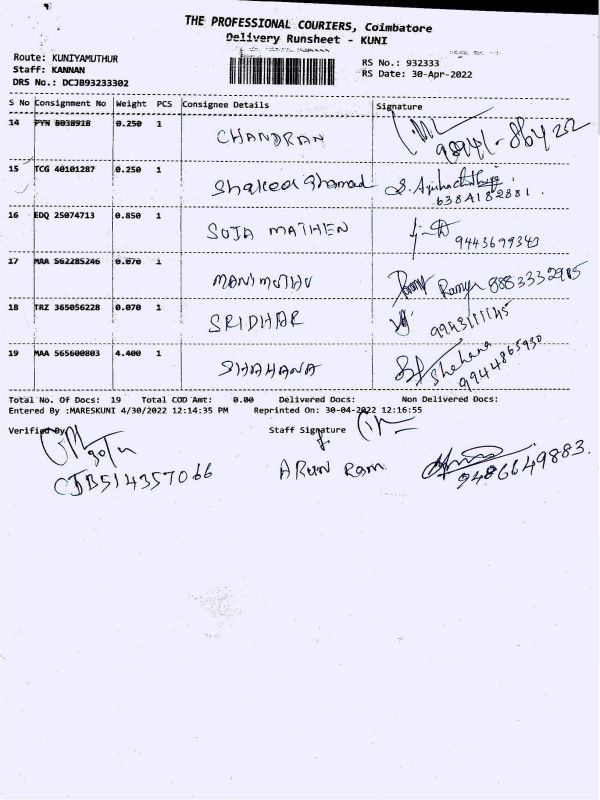 THE PROFESSIONAL COURIERS, Coimbatore
Delivery Runsheet - KUNI
Route: KUNIYAMUTHUR
Staff: KANNAN
DRS No.: DCJB93233302
RS No.: 932333
RS Date: 30-Apr-2022
S No Consignment No Weight PCS Consignee Details Signature
14 PYN 8038918 0.250 1 CHANDRAN
15 TCG 40101287 0.250 1 Shakeed Ahamad
16 EDQ 25074713 0.850 1 SOJA MATHEN 9443699340
17 MAA 562285246 0.070 1 MANIMUTHU Ramya 8883332985
18 TRZ 365056228 0.070 1 SRIDHAR 9943111145
19 MAA 565600803 4.400 1 SHAHANA Shahana 9944865930
Total No. Of Docs: 19 Total COD Amt: 0.00 Delivered Docs: Non Delivered Docs:
Entered By :MARESKUNI 4/30/2022 12:14:35 PM Reprinted On: 30-04-2022 12:16:55
Verified By Staff Signature
CJB514357066 ARUN Ram 9486649883